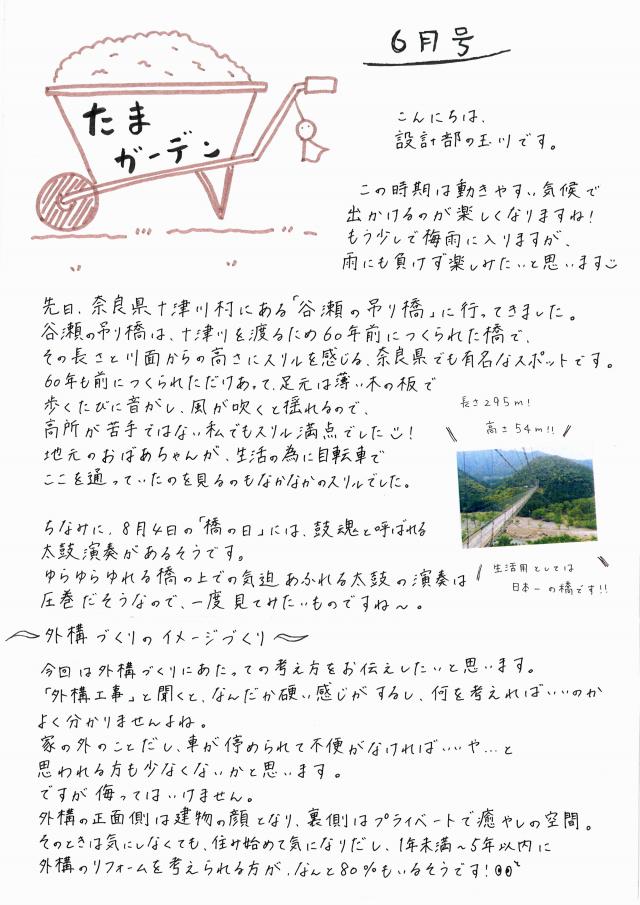 6月号
たま
ガーデン
こんにちは、
設計部の玉川です。
この時期は動きやすい気候で
出かけるのが楽しくなりますね！
もう少しで梅雨に入りますが、
雨にも負けず楽しみたいと思います
先日、奈良県十津川村にある「谷瀬の吊り橋」に行ってきました。
谷瀬の吊り橋は、十津川を渡るため60年前につくられた橋で、
その長さと川面からの高さにスリルを感じる、奈良県でも有名なスポットです。
60年も前につくられただけあって、足元は薄い木の板で
歩くたびに音がし、風が吹くと揺れるので、
高所が苦手ではない私でもスリル満点でした！
地元のおばあちゃんが、生活の為に自転車で
ここを通っていたのを見るのもなかなかのスリルでした。
長さ295m！
高さ54m!!
生活用としては
日本一の橋です!!
ちなみに、8月4日の「橋の日」には、鼓魂と呼ばれる
太鼓演奏があるそうです。
ゆらゆらゆれる橋の上での気迫あふれる太鼓の演奏は
圧巻だそうなので、一度見てみたいものですね〜。
〜外構づくりのイメージづくり〜
今回は外構づくりにあたっての考え方をお伝えしたいと思います。
「外構工事」と聞くと、なんだか硬い感じがするし、何を考えればいいのか
よく分かりませんよね。
家の外のことだし、車が停められて不便がなければいいや…と
思われる方も少なくないかと思います。
ですが侮ってはいけません。
外構の正面側は建物の顔となり、裏側はプライベートで癒やしの空間。
そのときは気にしなくても、住み始めて気になりだし、1年未満〜5年以内に
外構のリフォームを考えられる方が、なんと80%もいるそうです！